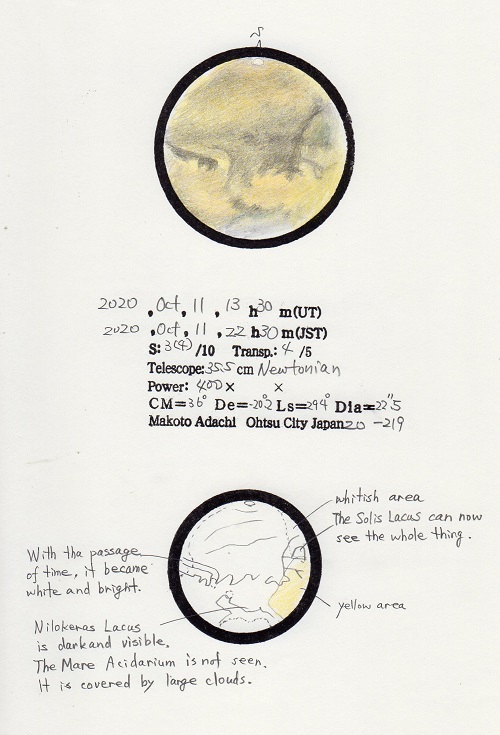 S
2020 , Oct, 11 , 13 h30 m(UT)
2020 , Oct, 11 , 22 h30 m(JST)
S: 3(4) /10 Transp.: 4 /5
Telescope: 355 cm Newtonian
Power: 400 × ×
CM=36° De=-20.2 Ls=294° Dia=22"5
Makoto Adachi Ohtsu City Japan 20 -219
whitish area
The Solis Lacus can now
see the whole thing.
With tha passage
of time, it became
white and bright.
yellow area
Nilokeras Lacus
is darkand visible.
The Mare Acidarium is not seen.
It is covered by large clouds.